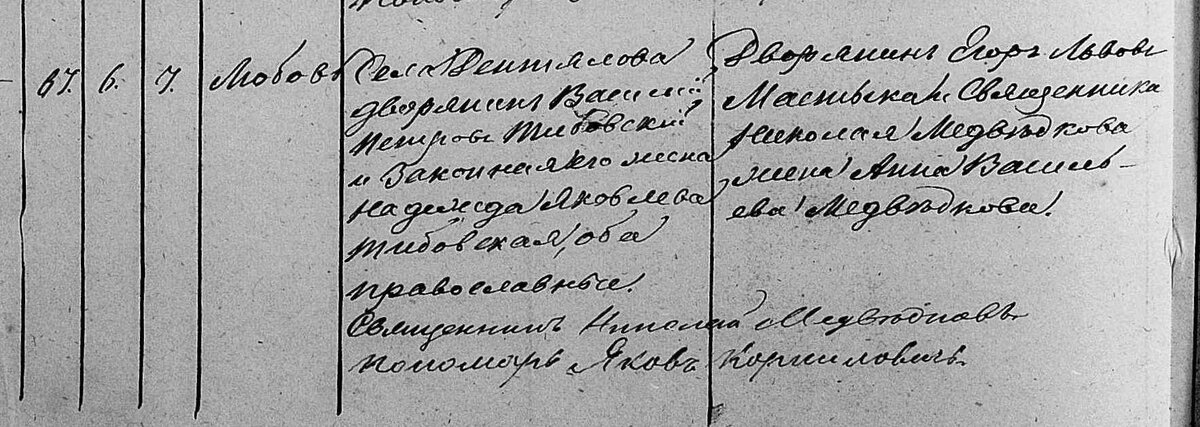 67. 6. 7. Любовь
Села Вентялова
дворянинъ Василій
Петровъ Тибовскій
и Законная его жена
Надежда Яковлева
Тибовская, оба
православные.
Дворянинъ Егоръ Львовъ
Мастыка и Священника
Николая Медвѣдкова
жена Анна Василь-
ева Медвѣдкова.
Священникъ Николай Медвѣдковъ
пономарь Яковъ Корниловичъ